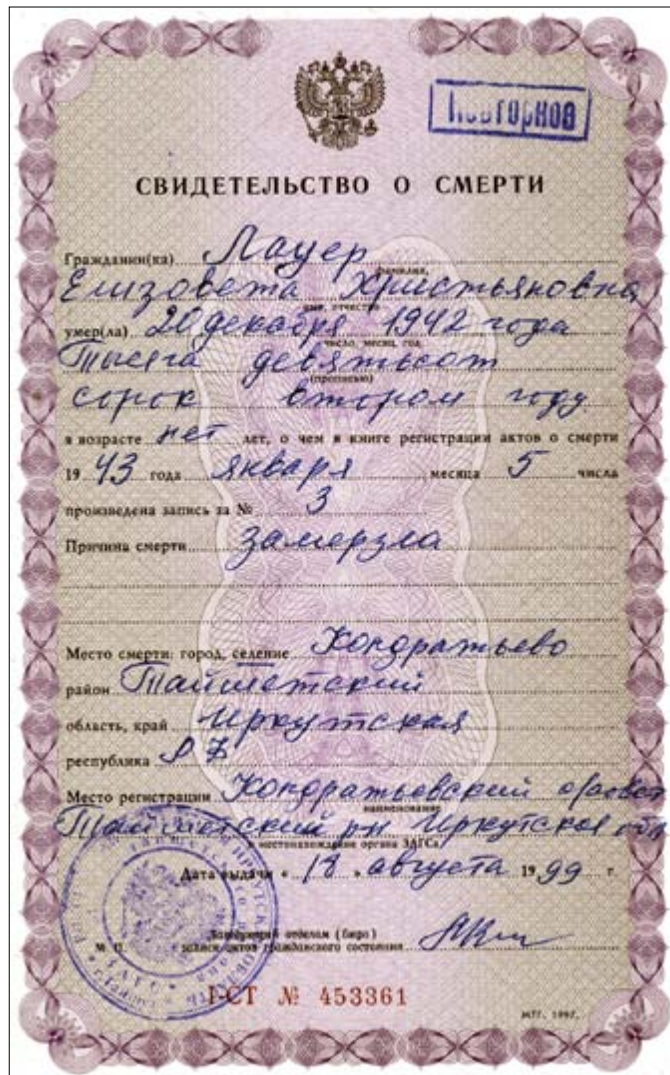 Повторное
СВИДЕТЕЛЬСТВО О СМЕРТИ
Гражданин(ка) Лауер
фамилия,
Елизовета Христьяновна
имя, отчество
умер(ла) 20 декабря 1942 года
число, месяц, год
Тысяча девятьсот
(прописью)
сорок втором году
в возрасте нет лет, о чем в книге регистрации актов о смерти
19 43 года января месяца 5 числа
произведена запись за № 3
Причина смерти замерзла
Место смерти: город, селение Кондратьево
район Тайшетский
область, край Иркутская
республика РФ
Место регистрации Кондратьевский с/совет
наименование
Тайшетский рн Иркутская обл
и местонахождение органа ЗАГСа
Дата выдачи « 18 » августа 19 99 г.
Заведующий отделом (бюро)
М. П. записи актов гражданского состояния
I-СТ № 453361
МТГ. 1997.